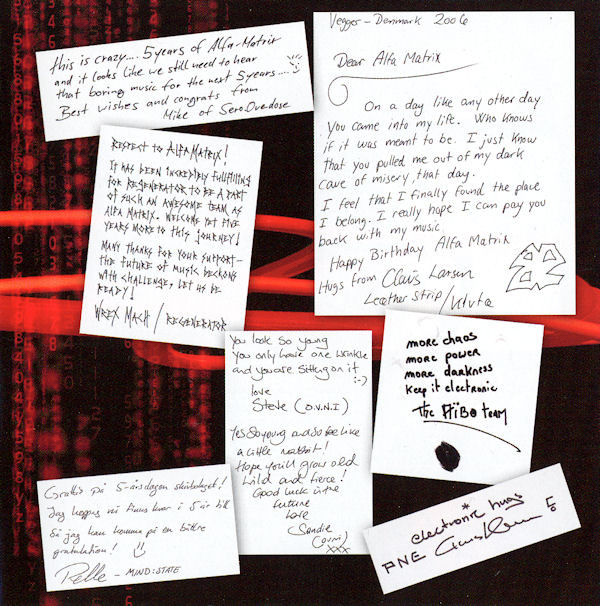 this is crazy.... 5 years of Alfa-Matrix
and it looks like we still need to hear
that boring music for the next 5 years....
Best wishes and congrats from
Mike of SeroOverdose
Vegger - Denmark 2006
Dear Alfa Matrix
On a day like any other day
You came into my life. Who knows
if it was meant to be. I just know
that you pulled me out of my dark
cave of misery that day.
I feel that I finally found the place
I belong. I really hope I can pay you
back with my music.
Happy Birthday Alfa Matrix
Hugs from Claus Larsen
Leather Strip / Klutæ
RESPECT TO ALFA MATRIX!
IT HAS BEEN INCREDIBLY FULFILLING
FOR REGENERATOR TO BE A PART
OF SUCH AN AWESOME TEAM AS
ALFA MATRIX. WELCOME YET FIVE
YEARS MORE TO THIS JOURNEY!
MANY THANKS FOR YOUR SUPPORT-
THE FUTURE OF MUSIC BECKONS
WITH CHALLENGE, LET US BE
READY!
WREX MACH / REGENERATOR
You look so young
You only have one wrinkle
and you are sitting on it
:-)
love
Steve (O.V.N.I)
Yes so young and so like
a little rabbit!
Hope you'll grow old
Wild and fierce!
Good luck in the
future
love
Sandie
(ovni)
xxx
more chaos
more power
more darkness
keep it electronic
The AïBO team
Grattis på 5-årsdagen skivbolaget!
Jag hoppas ni finns kvar i 5 år till
så jag kan komma på en bättre
gratulation!
Pelle - MIND:STATE
electronic hugs
PNE